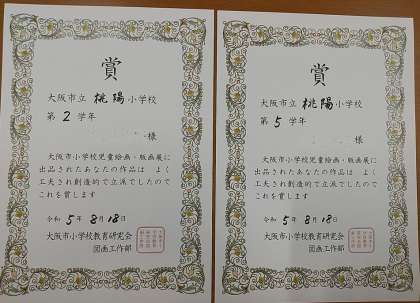 賞
大阪市立 桃陽 小学校
第 2 学年
様
大阪市小学校児童絵画・版画展に
出品されたあなたの作品は よく
工夫され創造的で立派でしたので
これを賞します
令和 5年 8月 18日
大阪市小学校教育研究会
図画工作部
賞
大阪市立 桃陽 小学校
第 5 学年
様
大阪市小学校児童絵画・版画展に
出品されたあなたの作品は よく
工夫され創造的で立派でしたので
これを賞します
令和 5年 8月 18日
大阪市小学校教育研究会
図画工作部